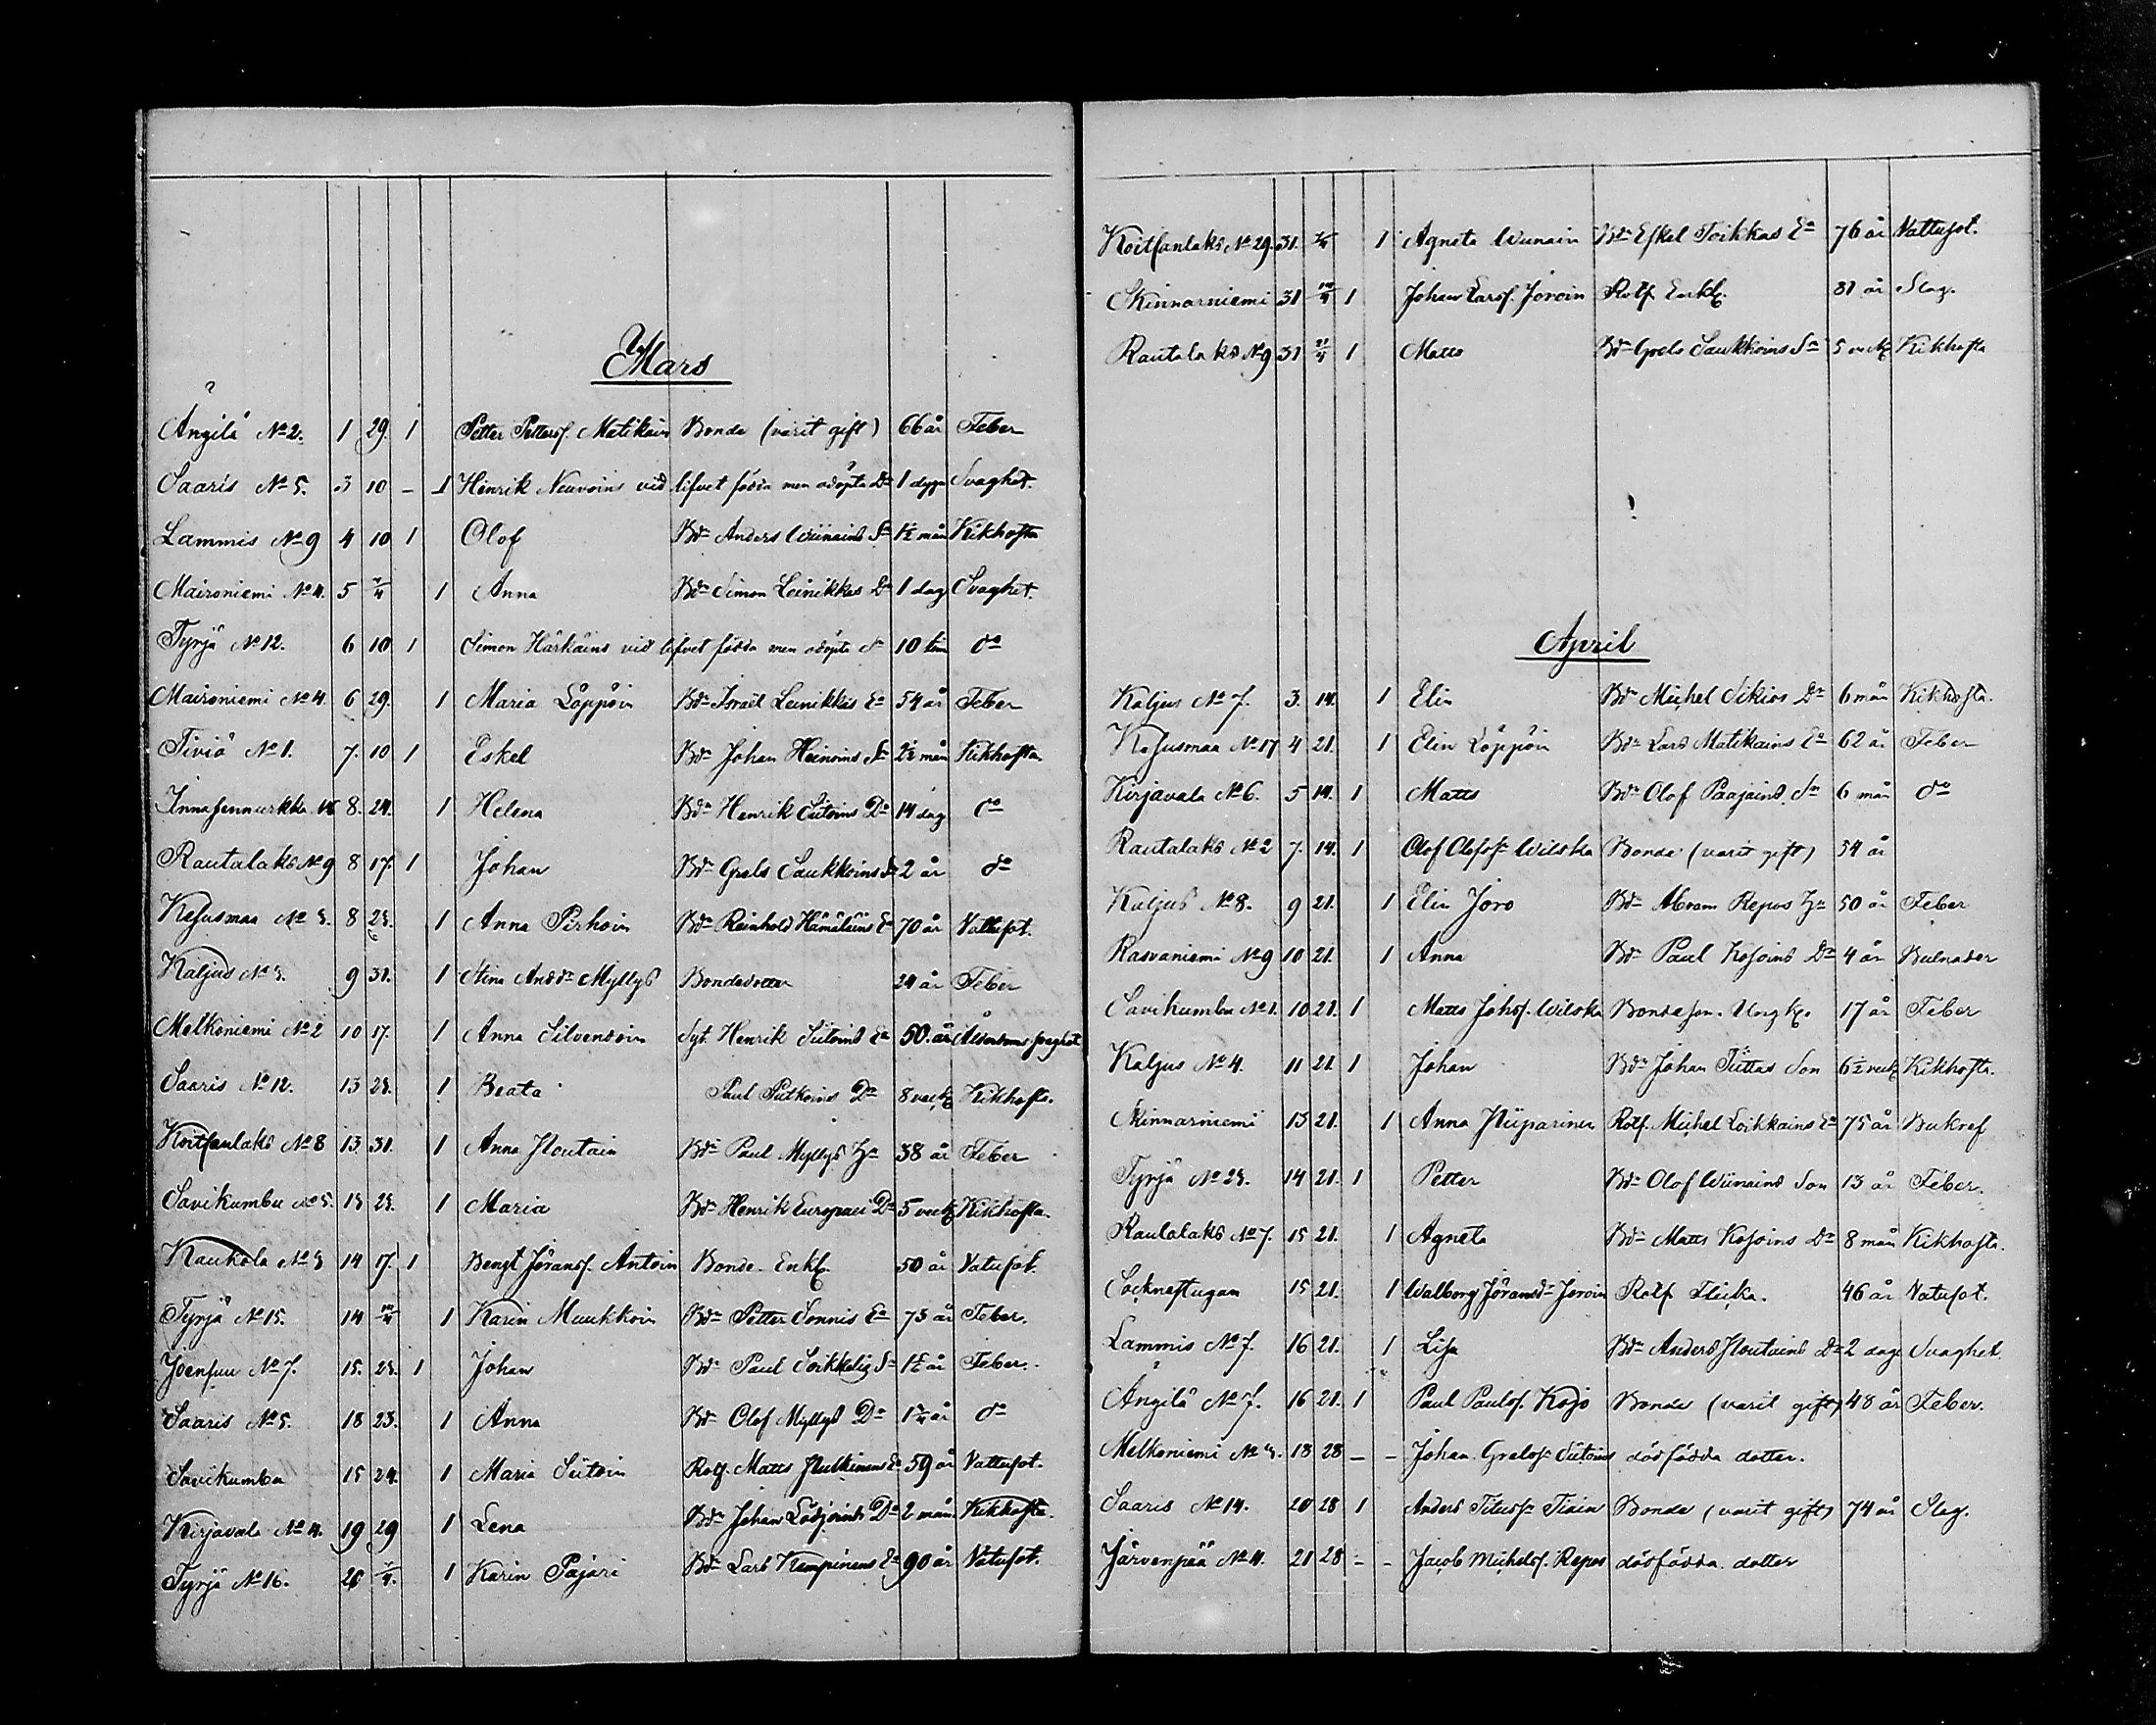 Mars
Ängilä No 2. 1 29. 1 Petter Pettersf. Matikain Bonde (varit gift) 66 år Feber
Saaris No 5. 3 10 - 1 Henrik Neuvoins vid lifvet födda men odöpta Dr 1 dygn Svaghet.
Lammis No 9 4 10 1 Olof Bdn Anders Wiinains Sn 1½ mån Kikhosta
Maironiemi No 4. 5 1 Anna Bdn Simon Leinikkas Dr 1 dag Svaghet.
Tyrjä No 12. 6 10 1 Simon Härkäins vid lifvet födda men odöpta Sn 10 tim do
Maironiemi No 4. 6 29. 1 Maria Löppöin Bdn Israel Leinikkas Ea 54 år Feber
Tiviä No 1. 7. 10 1 Eskel Bdn Johan Heinoins Sn 2½ mån Kikhosta
8. 24. 1 Helena Bdn Henrik Siitoins Dr 14 dag do
Rautalaks No 9 8 17. 1 Johan Bdn Grels Saukkoins Sn 2 år do
Kesusmaa No 3. 8 1 Anna Pirhoin Bdn Reinhold Hämäläins Ea 70 år Vattusot.
Kaljus No 3. 9 31. 1 Stina Andsdr Myllys Bondedotter 24 år Feber
Melkoniemi No 2 10 17. 1 Anna Silvendoin Syt. Henrik Siitoins Ea 50. år Ålderdoms svaghet
Saaris No 12. 13 23. 1 Beata Paul Putkoins Dr 8 veck Kikhosta.
Koitsanlaks No 8 13. 31. 1 Anna Houtain Bdn Paul Myllys Hu 38 år Feber
Savikumbu No 5. 13 23. 1 Maria Bdn Henrik Europaei Dr 5 veck Kikhosta.
Kaukola No 3 14 17. 1 Bengt Jöransf. Antoin Bonde. Enkl. 50 år Vatusot.
Tyrjä No 15. 14 1 Karin Muukkoin Bdn Petter Sonnis Ea 73 år Feber.
Joensuu No 7. 15. 23. 1 Johan Bdn Paul Soikkelis Sn 1½ år Feber.
Saaris No 5. 18 23. 1 Anna Bdn Olof Myllys Dr 1¾ år do
Savikumbu 15 24. 1 Maria Siitoin Rotf. Matts Hulkinens Ea 59 år Vattusot.
Kirjavala No 4. 19 29 1 Lena Bdn Johan Lodjoinds Dr 2 mån Kikhosta.
Tyrjä No 16. 1 Karin Pajari Bdn Lars Kempinens Ea 90 år Vatusot.
Koitsanlaks No 29. 31. 1 Agneta Wunain Bdn Eskel Toikkas Ea 76 år Vattusot.
Skinnarniemi 31 1 Johan Larsf. Joroin Rotf. Enkl. 81 år Slag.
Rautalaks No 9 31 1 Matts Bdn Grels Saukkoins Sn 5 veck Kikhosta
April
Kaljus No 7. 3. 14. 1 Elin Bdn Michel Sikios Dr 6 mån Kikhosta.
Kesusmaa No 17 4 21. 1 Elin Löppöin Bdn Lars Matikains Ea 62 år Feber
Kirjavala No 6. 5 14. 1 Matts Bdn Olof Paajains Sn 6 mån do
Rautalaks No 2 7. 14. 1 Olof Olofsn Wilska Bonde (varit gift) 54 år
Kaljus No 8. 9 21. 1 Elin Joro Bdn Abram Repos Hu 50 år Feber
Rasvaniemi No 9 10 21. 1 Anna Bdn Paul Kojoins Dr 4 år Bulnader
Savikumbu No 1. 10 21. 1 Matts Johsf. Wilska Bondeson. Ungk. 17 år Feber
Kaljus No 4. 11 21. 1 Johan Bdn Johan Tiittas Son 6½ veck Kikhosta.
Skinnarniemi 13 21. 1 Anna Hiiparinen Rotf. Michel Loikkains Ea 75 år Bukref
Tyrjä No 23. 14 21. 1 Petter Bdn Olof Wiinains Son 13 år Feber.
Rautalaks No 7. 15 21. 1 Agneta Bdn Matts Kojoins Dr 8 mån Kikhosta.
Sockenstugan 15 21. 1 Walborg Jöransdr Joroin Rotf. Flicka. 46 år Vatusot.
Lammis No 7. 16 21. 1 Lisa Bdn Anders Houtains Dr 2 dag. Svaghet.
Ängilä No 7. 16 21. 1 Paul Paulsf. Kojo Bonde (varit gift) 48 år Feber.
Melkoniemi No 3. 18 28 - - Johan Grelsf. Siitoins dödfödda dotter.
Saaris No 14. 20 28 1 Anders Titusf. Tiain Bonde (varit gift) 74 år Slag.
Järvenpää No 4. 21 28 - - Jacob Michelsf. Repos dödfödda dotter